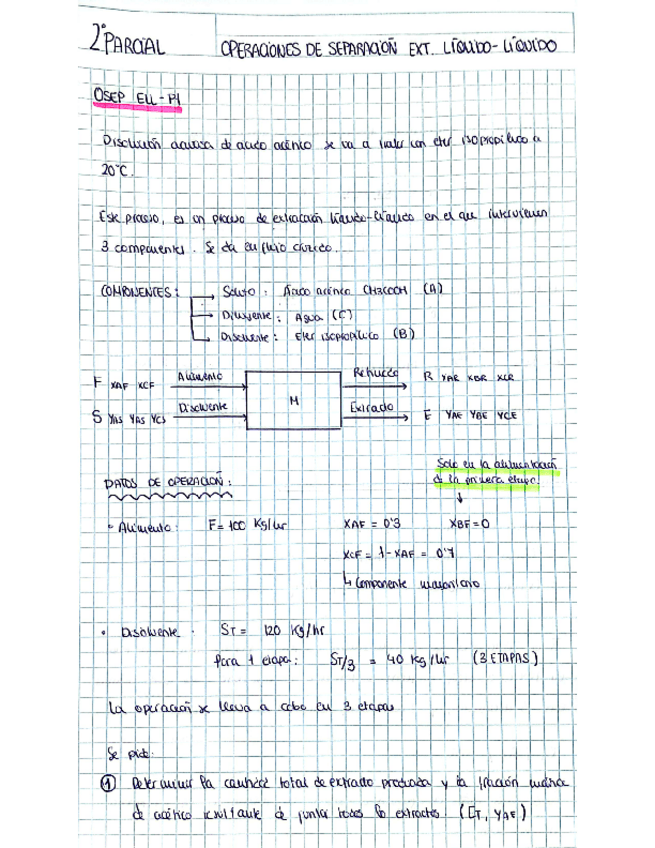 2º PARCIAL
OPERACIONES DE SEPARACIÓN EXT. LÍQUIDO-LÍQUIDO
OSEP ELL-P1
Disolución acuosa de ácido acético se va a tratar con eter isopropílico a
20°C.
Este proceso, es un proceso de extracción líquido-líquido en el que intervienen
3 componentes. Se da en flujo
COMPONENTES:
Soluto: Ácido acético CH3COOH (A)
Diluyente: Agua (C)
Disolvente: Eter isopropílico (B)
F XAF XCF Alimento
M
Refinado R XAR XBR XCR
S YAS YBS YCS Disolvente
Extracto E YAE YBE YCE
Solo en la alimentación
de la primera etapa!
DATOS DE OPERACIÓN:
• Alimento: F= 100 Kg/hr XAF = 0'3 XBF = 0
XCF = 1-XAF = 0'7
↳ Componente mayoritario
• Disolvente. ST = 120 Kg/hr
Para 1 etapa: ST/3 = 40 Kg/hr (3 ETAPAS)
La operación se lleva a cabo en 3 etapas
Se pide:
① Determinar la cantidad total de extracto producida y la fracción másica
de acético resultante de juntar todos lo extractos (ET, YAE)